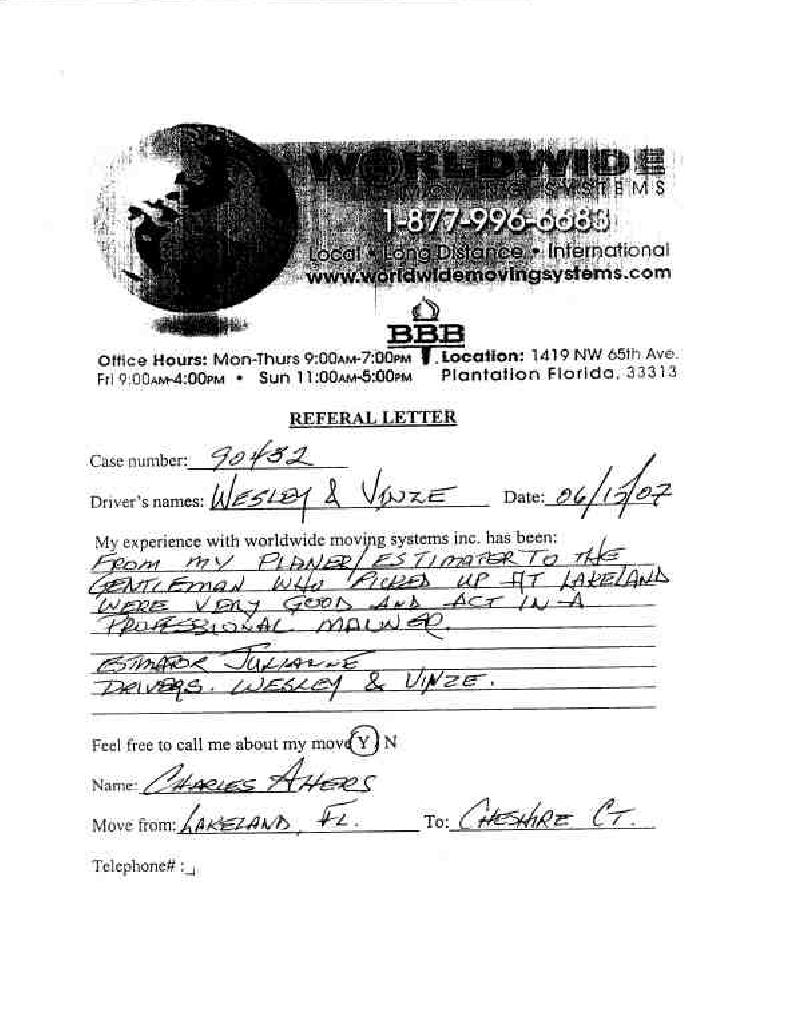 WORLDWIDE
MOVING SYSTEMS
1-877-996-6683
Local • Long Distance • International
www.worldwidemovingsystems.com
BBB
Office Hours: Mon-Thurs 9:00AM-7:00PM
Location: 1419 NW 65th Ave.
Fri 9:00AM-4:00PM • Sun 11:00AM-5:00PM
Plantation Florida, 33313
REFERAL LETTER
Case number: 90432
Driver's names: WESLEY & VINZE Date: 06/15/07
My experience with worldwide moving systems inc. has been:
FROM MY PLANER/ESTIMATER TO THE
GENTLEMAN WHO PICKED UP AT LAKELAND
WERE VERY GOOD AND ACT IN A
PROFESSIONAL MAUNER.
ESTMATOR JULIANNE
DRIVERS. WESLEY & VINZE.
Feel free to call me about my move Y N
Name: CHARLES AHERS
Move from: LAKELAND, FL. To: CHESHIRE CT.
Telephone# :